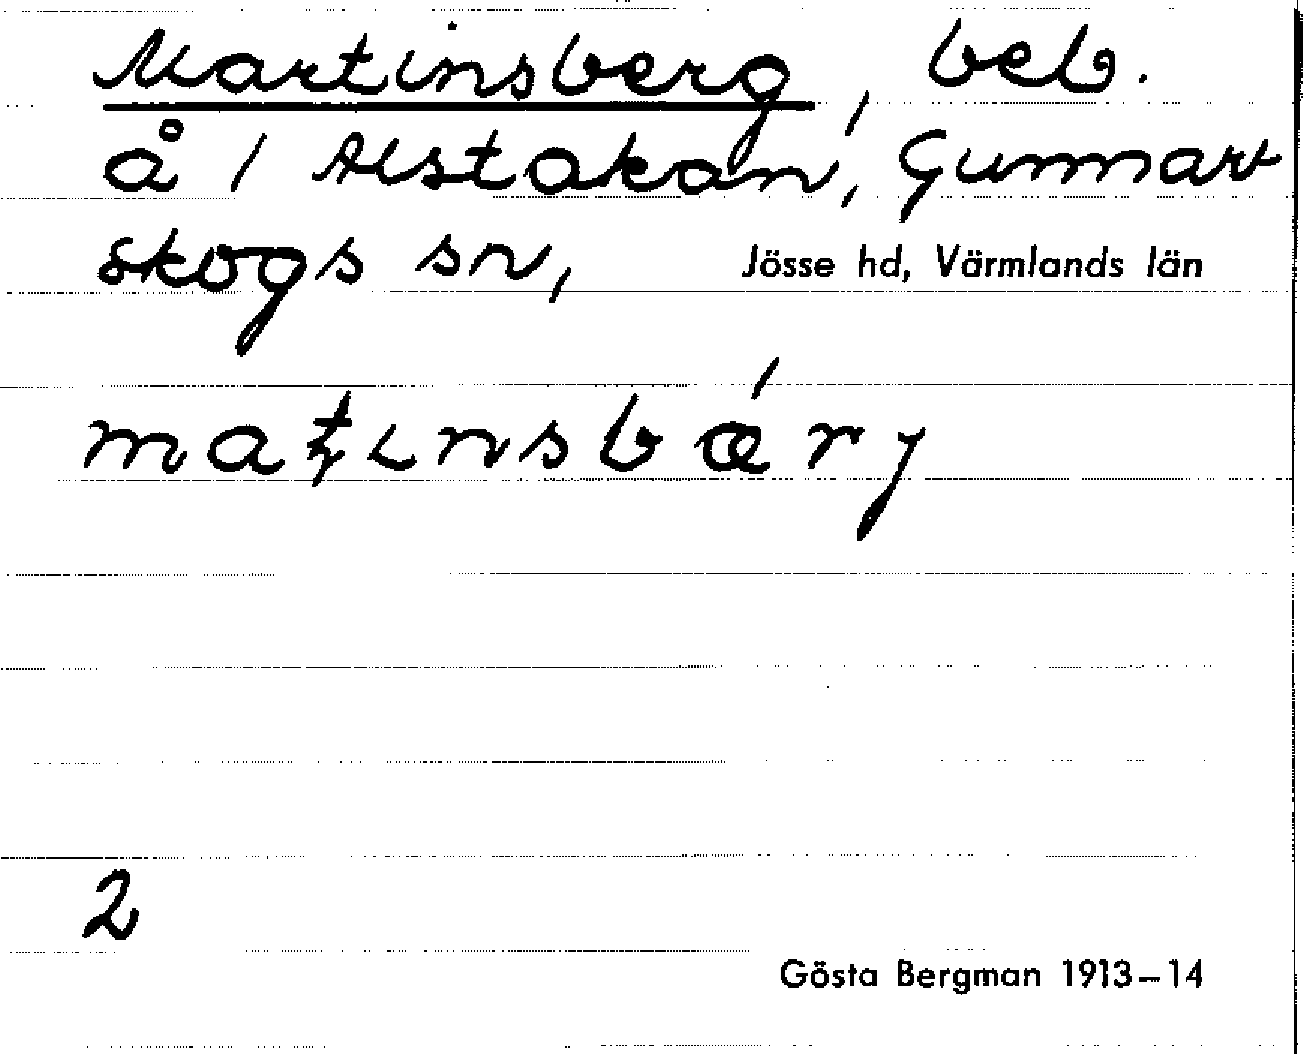 Martinsberg, beb.
å / Alstakan, Gunnars
skogs sn, Jösse hd, Värmlands län
maʈinsbǽrj
2
Gösta Bergman 1913–14